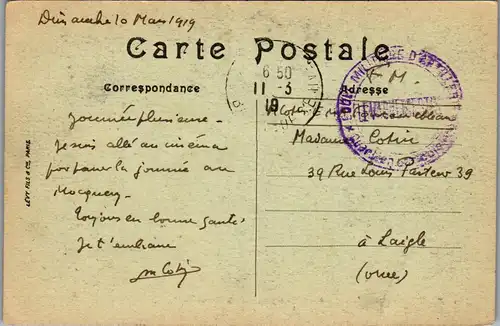 Dimanche 10 Mars 1919
Carte Postale
Correspondance
Adresse
6 50
11 - 3
19
F. M.
Journée pluvieuse -
Je suis allé au cinéma
passer la journée au
toujours en bonne santé.
Je t'embrasse
M Cotin
Madame Cotin
39 Rue Louis Pasteur 39
à Laigle
(Orne)
LÉVY FILS & Cie, PARIS